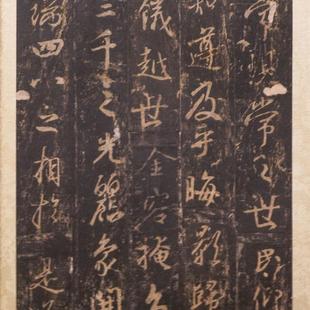 常現常之世民仰
知遵及乎晦影歸
儀越世金容掩色
三千之光麗象開
端四八之相於是